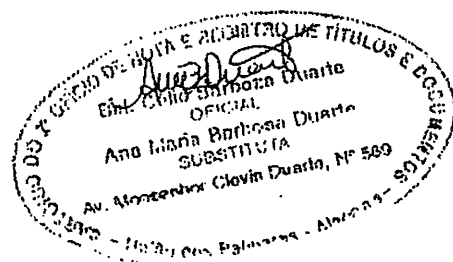 CARTÓRIO DO 2º OFÍCIO DE NOTA E REGISTRO DE TÍTULOS E DOCUMENTOS
Célio Barboza Duarte
OFICIAL
Ana Maria Barbosa Duarte
SUBSTITUTA
Av. Monsenhor Clovis Duarte, Nº 569
União dos Palmares - Alagoas -